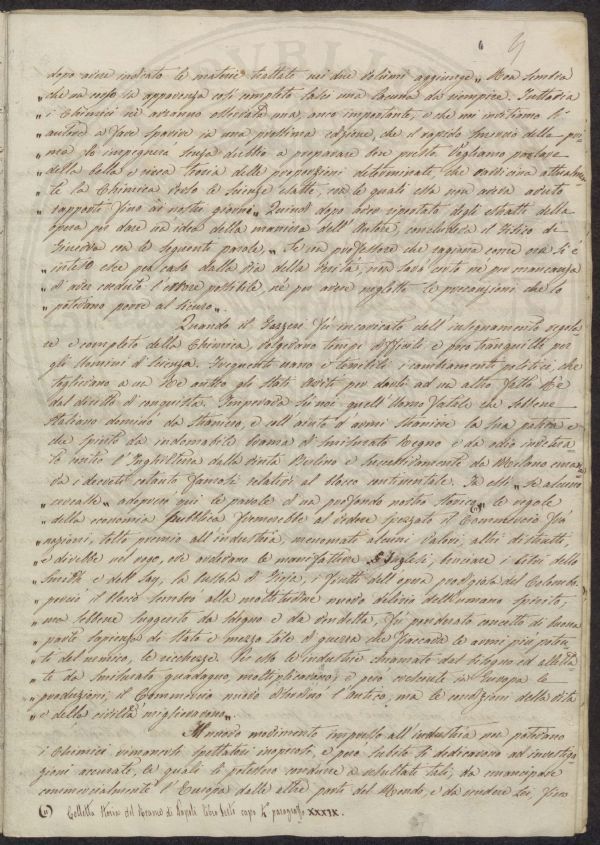 6 9
dopo avere indicato le materie trattate nei due volumi aggiunge „ Ma sembra
„ che un corso in apparenza così completo lasci una lacuna da riempiere. Tuttavia
„ i Chimici ne avranno osservata una, anco importante, e che noi invitiamo l'
„ autore a fare sparire in una prossima edizione, che il rapido smercio della pri=
„ ma lo impegnerà senza dubbio a preparare ben presto. Vogliamo parlare
„ della bella e ricca teoria delle proporzioni determinate, che ravvicina attualmen=
„ te la Chimica verso le scienze esatte, con le quali essa non aveva avuto
„ rapporti fino ai nostri giorni„ Quindi dopo aver riportato degli estratti della
opera per dare un idea della maniera dell'Autore, concludeva il Fisico di
Ginevra con le seguenti parole, „ Se un professore che ragiona come ora si è
„ inteso esce per caso dalla via della verità, non sarà certo nè per mancanza
„ d'aver creduto l'errore possibile, nè per avere neglette le precauzioni che lo
„ potevano porre al sicuro„.
Quando il Gazzeri fu incaricato dell'insegnamento regola=
re e completo della Chimica, volgevano tempi difficili e poco tranquilli per
gli uomini di scienza. Frequenti erano e terribili i cambiamenti politici, che
toglievano a un Re antico gli Stati aviti per darli ad un altro fatto Re
dal diritto di conquista. Imperava su noi quell'Uomo fatale che sebbene
Italiano dominò da straniero, e coll'aiuto d'armi straniere la sua patria e
che spinto da indomabile brama di smisurato Regno e da odio intensa
to contro l'Inghilterra dalla vinta Berlino e successivamente da Milano emana=
va i decreti cotanto famosi relativi al blocco continentale. Ed essi „ se alcuno
„ cercasse„ adopero qui le parole d'un profondo nostro storico (1)„ le regole
„ della economia pubblica fremerebbe al vedere spezzato il Commercio fra
„ nazioni, tolto premio all'industria, menomati alcuni valori, altri distrutti
„ e direbbe nel rogo, ove ardevano le manifatture Inglesi, bruciare i libri dello
„ Smith e dell'Say, la bussola di Gioja, i frutti dell'opera prodigiosa del Colombo.
„ perciò il blocco sembrò alla moltitudine nuovo delirio dell'umano spirito,
„ ma sebbene suggerito da sdegno e da vendetta, fu ponderato concetto di buona
„ parte sapienza di Stato e mezzo tale di guerra che fiaccava le armi più poten=
„ ti del nemico, le ricchezze. Per esso le industrie chiamate dal bisogno ed alletta=
„ te da smisurato guadagno, moltiplicarono; e però crebbero in Europa le
„ produzioni; il Commercio nuovo distrusse l'antico, ma le condizioni della vita
„ e della civiltà migliorarono„.
Al nuovo movimento impresso all'industria non potevano
i Chimici rimanersi spettatori inoperosi, e però subito si dedicarono ad investiga
zioni accurate, le quali li potessero condurre a resultati tali, da emancipare
commercialmente l'Europa dalle altre parti del Mondo, e da rendere Lei, fino
(1) Colletta Storia del Reame di Napoli libro Sesto capo 4° paragrafo XXXIX.